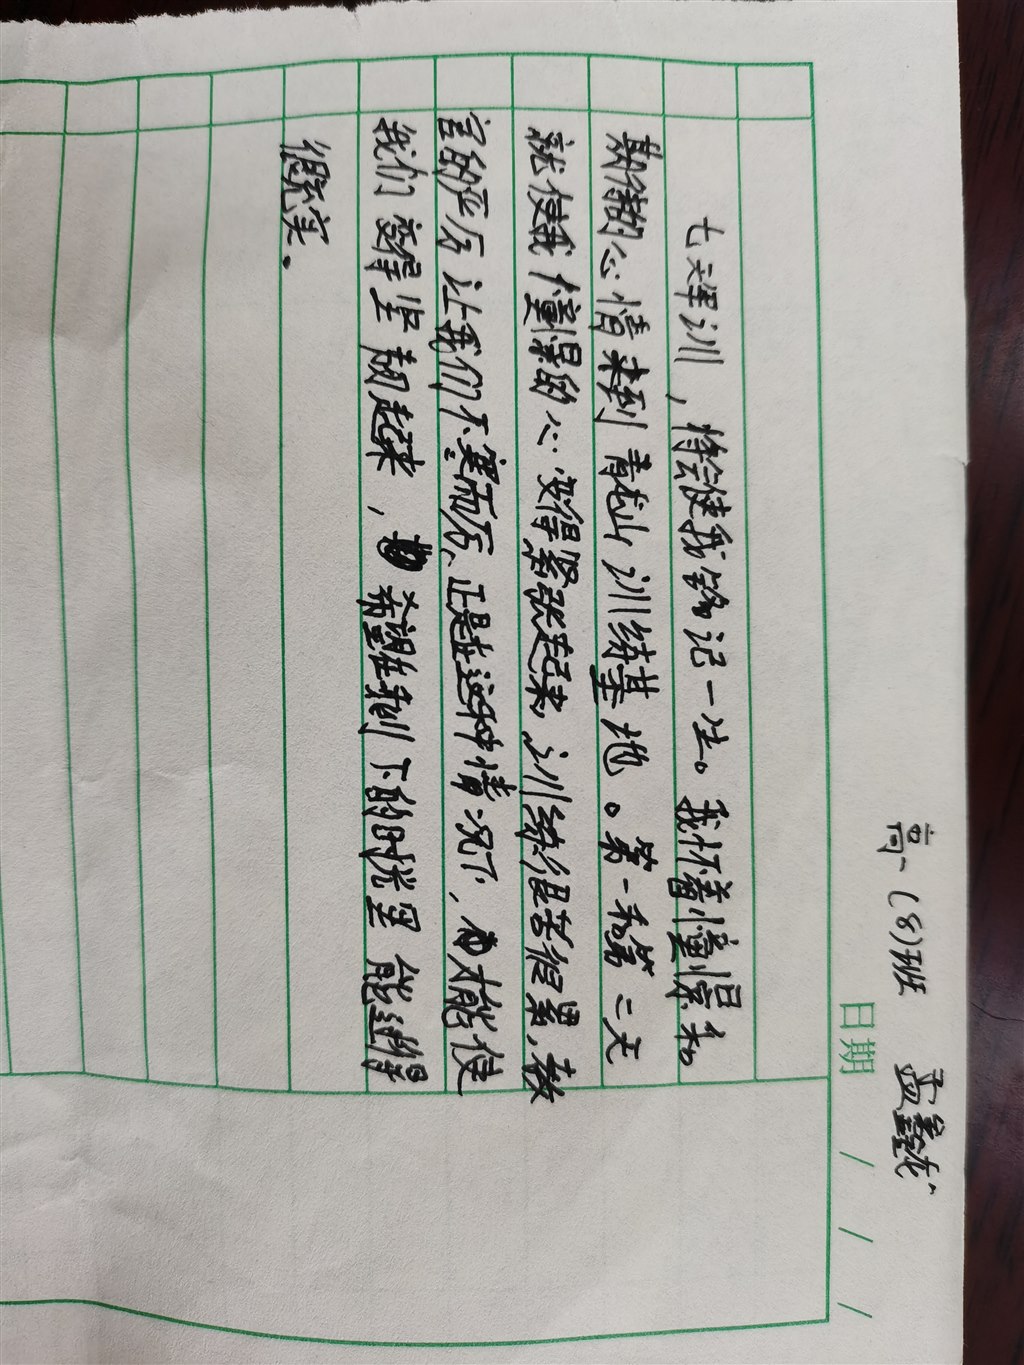 高一(8)班 孟鑫
日期 / / /
七天军训，将会使我铭记一生。我怀着憧憬和
期待的心情来到青龙山训练基地。第一和第二天
就使我憧憬的心变得紧张起来，训练很苦很累，教
官的严厉让我们不寒而厉、正是在这种情况下，才能使
我们变得坚韧起来，希望在军训下的时光里能过得
很充实。